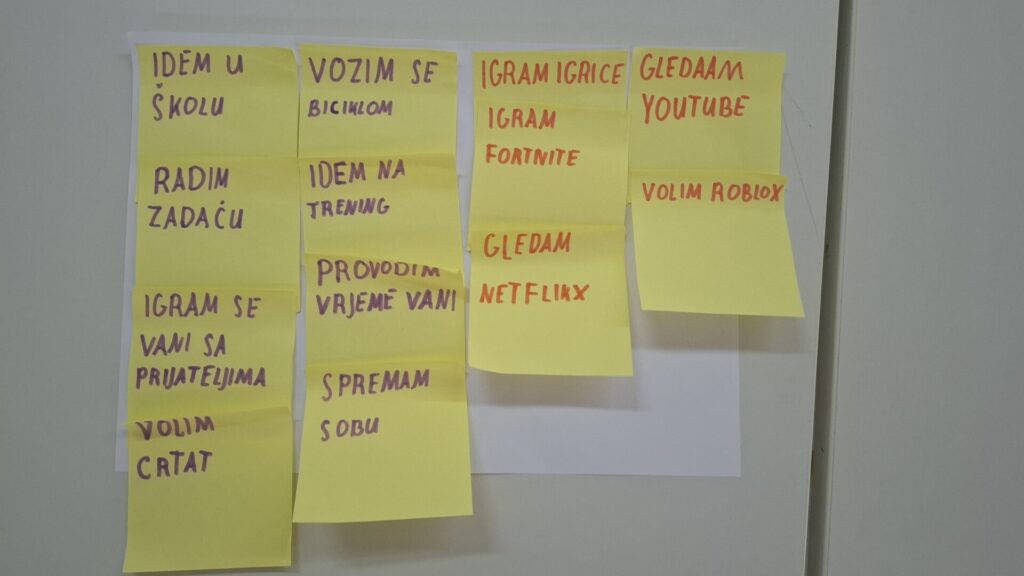 IDEM U
ŠKOLU
RADIM
ZADAĆU
IGRAM SE
VANI SA
PRIJATELJIMA
VOLIM
CRTAT
VOZIM SE
BICIKLOM
IDEM NA
TRENING
PROVODIM
VRJEME VANI
SPREMAM
SOBU
IGRAM IGRICE
IGRAM
FORTNITE
GLEDAM
NETFLIKX
GLEDAAM
YOUTUBE
VOLIM ROBLOX